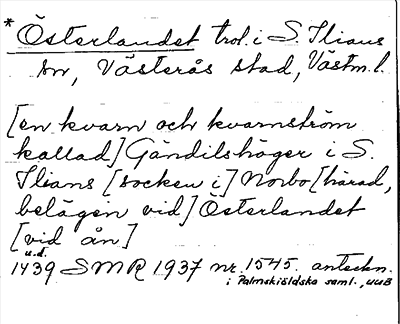 * Österlandet trol. i S. Ilians
sn, Västerås stad, Västm. l.
[en kvarn och kvarnström
kallad] Gändilshöger i S.
Ilians [socken i] Norbo [härad,
belägen vid] Österlandet
[vid ån]
u.d.
1439 SMR 1937 nr. 1545. anteckn.
i Palmskiöldska saml., UUB